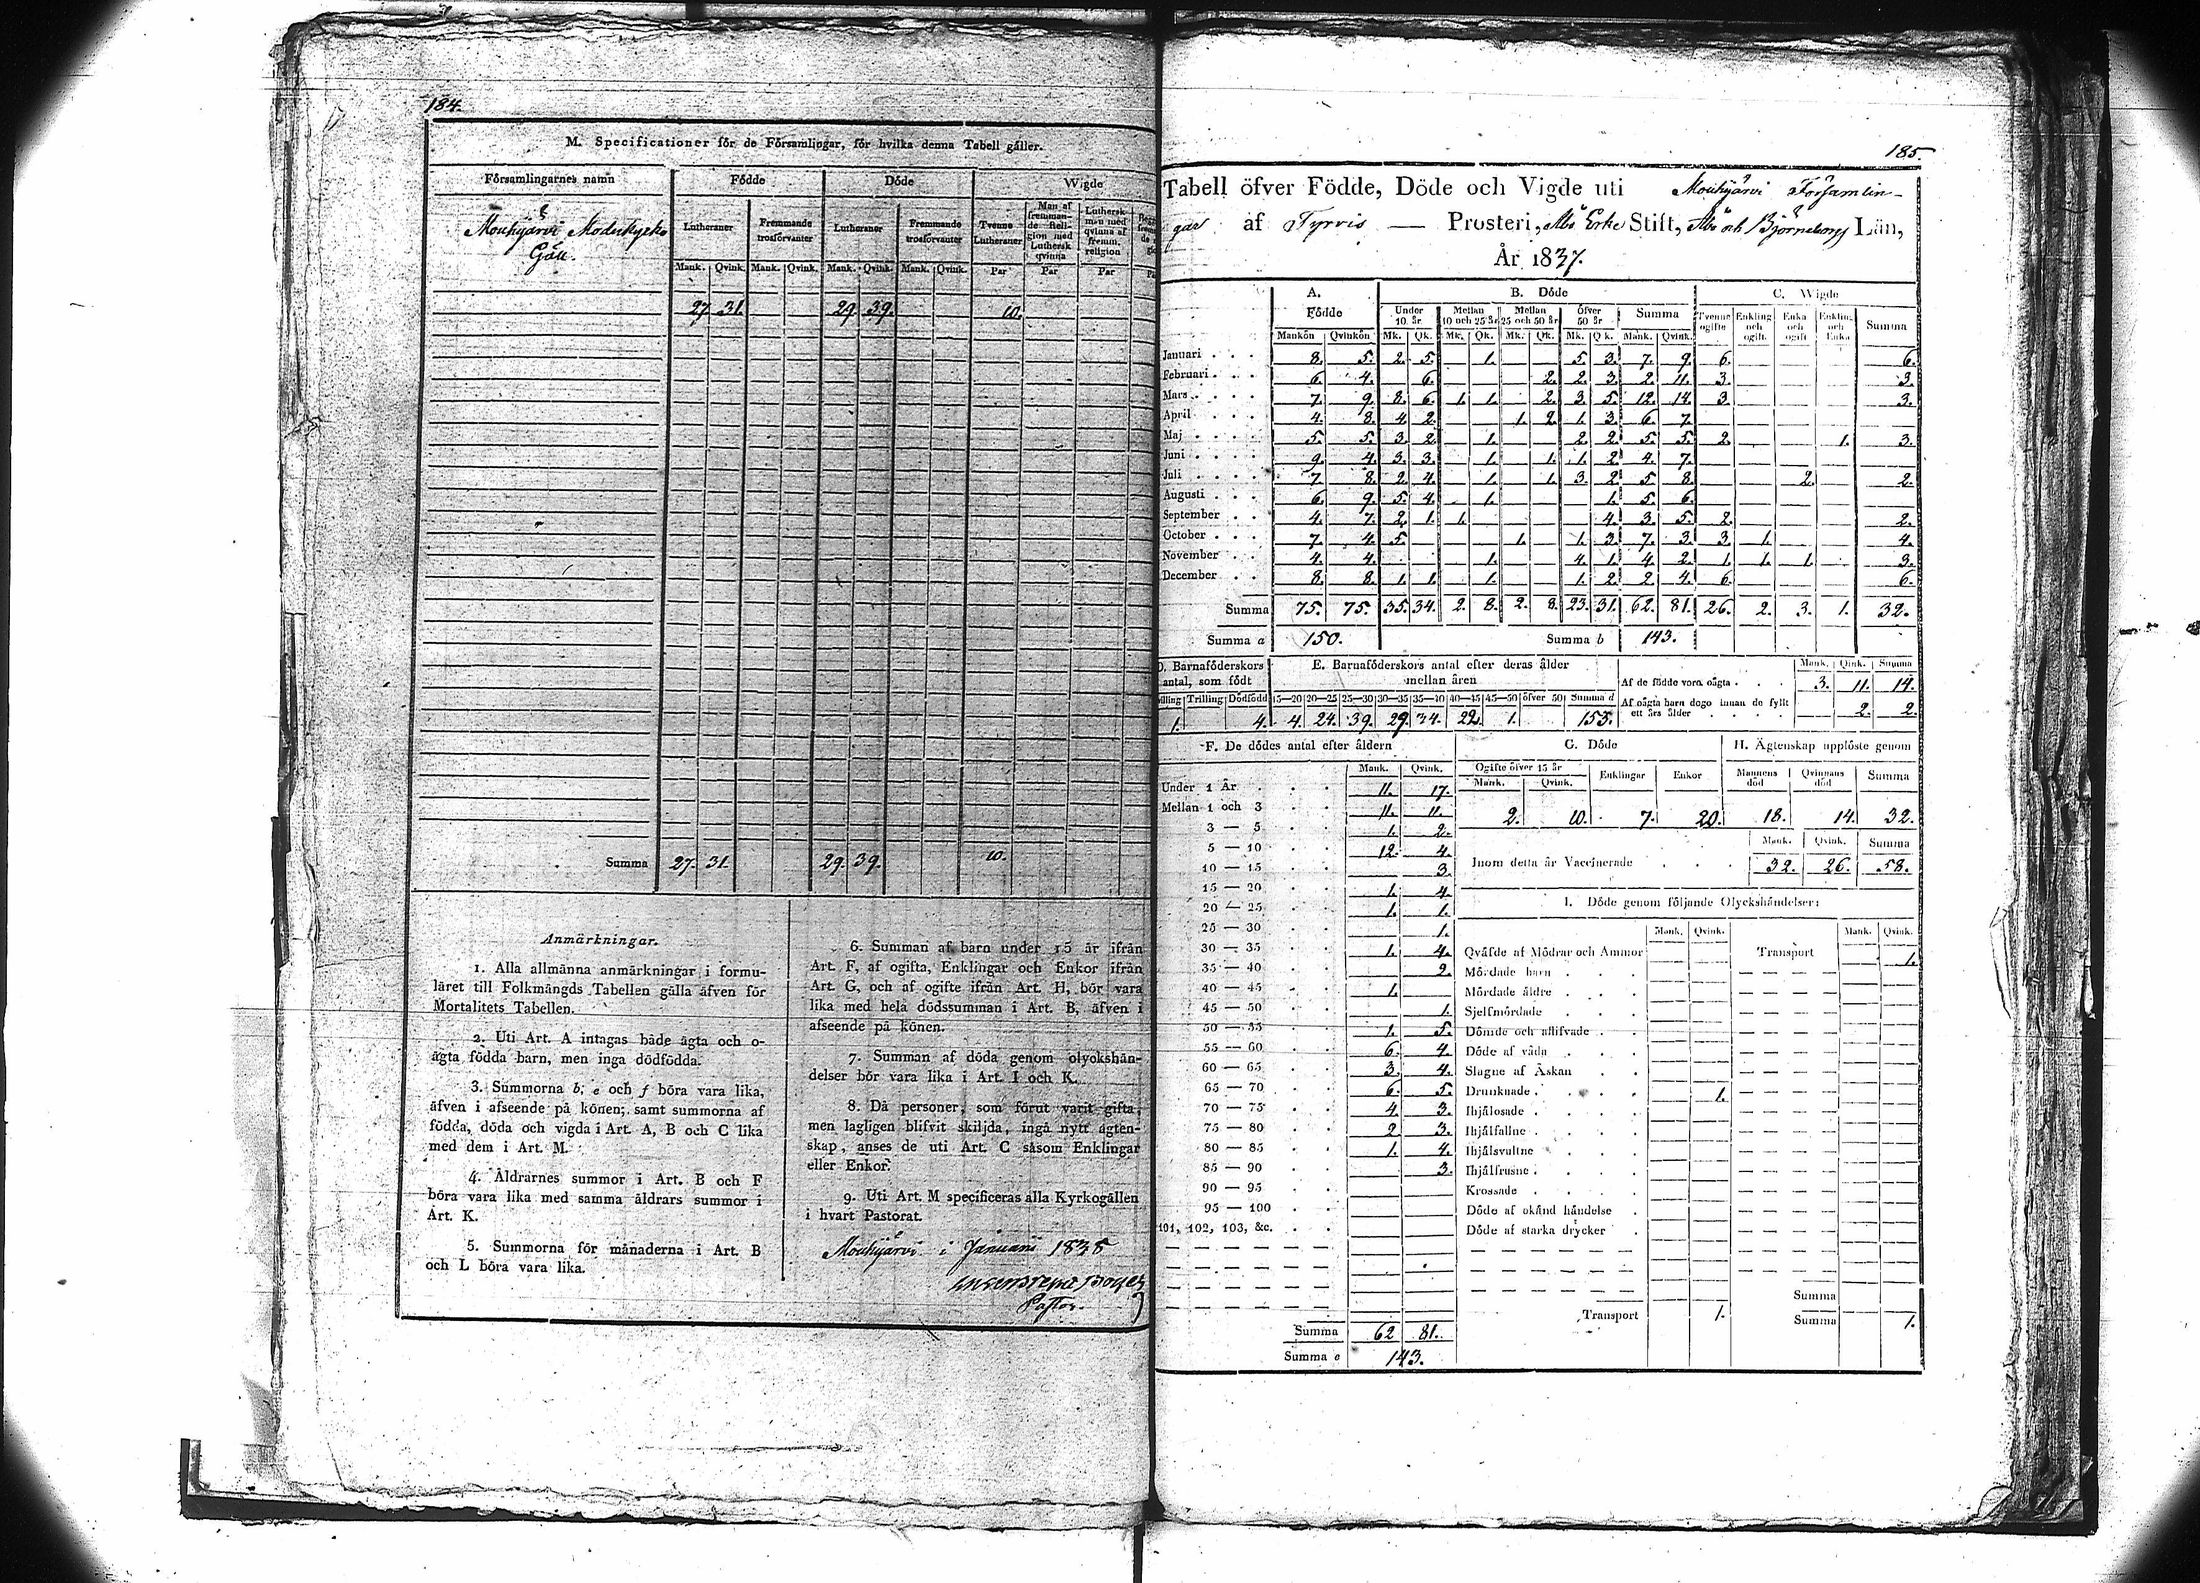 184.
M. Specificationer för de Församlingar, för hvilka denna Tabell gäller.
Församlingarnes namn Födde Döde Wigde
Lutheraner Fremmande trosförvanter Lutheraner Fremmande trosförvanter Tvenne Lutheraner Man af fremmande Religion med Luthersk qvinna Luthersk man med qvinna af fremm. religion
Mank. Qvink. Mank. Qvink. Mank. Qvink. Mank. Qvink. Par Par Par
Mouhijärvi Moderkyrko
Gäll.
27. 31. 29. 39. 10.
Summa 27. 31. 29. 39. 10.
Anmärkningar.
1. Alla allmänna anmärkningar i formu-
läret till Folkmängds Tabellen gälla äfven för
Mortalitets Tabellen.
2. Uti Art. A intagas både ägta och o-
ägta födda barn, men inga dödfödda.
3. Summorna b, e och f böra vara lika,
äfven i afseende på könen; samt summorna af
födda, döda och vigda i Art. A, B och C lika
med dem i Art. M.
4. Åldrarnes summor i Art. B och F
böra vara lika med samma åldrars summor i
Art. K.
5. Summorna för månaderna i Art. B
och L böra vara lika.
6. Summan af barn under 15 år ifrån
Art. F, af ogifta, Enklingar och Enkor ifrån
Art. G, och af ogifte ifrån Art. H, bör vara
lika med hela dödssumman i Art. B, äfven i
afseende på könen.
7. Summan af döda genom olyckshän-
delser bör vara lika i Art. I och K.
8. Då personer, som förut varit gifta,
men lagligen blifvit skiljda, ingå nytt ägten-
skap, anses de uti Art. C såsom Enklingar
eller Enkor.
9. Uti Art. M specificeras alla Kyrkogällen
i hvart Pastorat.
Mouhijärvi i Januarii 1838
Pastor.
185.
Tabell öfver Födde, Döde och Vigde uti Mouhijärvi Församlin-
gar af Tyrvis — Prosteri, Åbo Erke Stift, Åbo och Björneborgs Län,
År 1837.
A. Födde B. Döde C. Wigde
Under 10 år. Mellan 10 och 25 år Mellan 25 och 50 år Öfver 50 år Summa Tvenne ogifte Enkling och ogift. Enka och ogift Enkling och Enka Summa
Mankön Qvinkön Mk. Qk. Mk. Qk. Mk. Qk. Mk. Qk. Mank. Qvink.
Januari 8. 5. 2. 5. 1. 5. 3. 7. 9. 6. 6.
Februari 6. 4. 6. 2. 2. 3. 2. 11. 3. 3.
Mars 7. 9. 8. 6. 1. 1. 2. 3. 5. 12. 14. 3. 3.
April 4. 8. 4. 2. 1. 2. 1. 3. 6. 7.
Maj 5. 5. 3. 2. 1. 2. 2. 5. 5. 2. 1. 3.
Juni 9. 4. 3. 3. 1. 1. 1. 2. 4. 7.
Juli 7. 8. 2. 4. 1. 1. 3. 2. 5. 8. 2. 2.
Augusti 6. 9. 5. 4. 1. 1. 5. 6.
September 4. 7. 2. 1. 1. 4. 3. 5. 2. 2.
October 7. 4. 5. 1. 1. 3. 7. 3. 3. 1. 4.
November 4. 4. 1. 4. 1. 4. 2. 1. 1. 1. 3.
December 8. 8. 1. 1. 1. 1. 2. 2. 4. 6. 6.
Summa 75. 75. 35. 34. 2. 8. 2. 8. 23. 31. 62. 81. 26. 2. 3. 1. 32.
Summa a 150. Summa b 143.
D. Barnaföderskors antal, som födt
Trilling Dödfödd
1. 4.
E. Barnaföderskors antal efter deras ålder
mellan åren
15—20 20—25 25—30 30—35 35—40 40—45 45—50 öfver 50 Summa d
4. 24. 39. 29. 34. 22. 1. 153.
Mank. Qink. Summa
Af de födde voro oägta 3. 11. 14.
Af oägta barn dogo innan de fyllt
ett års ålder 2. 2.
F. De dödes antal efter åldern
Mank. Qvink.
Under 1 År 11. 17.
Mellan 1 och 3 11. 11.
3 — 5 1. 2.
5 — 10 12. 4.
10 — 15 3.
15 — 20 1. 4.
20 — 25 1. 1.
25 — 30 1.
30 — 35 1. 4.
35 — 40 2.
40 — 45 1.
45 — 50 1.
50 — 55 1. 5.
55 — 60 6. 4.
60 — 65 3. 4.
65 — 70 6. 5.
70 — 75 4. 3.
75 — 80 2. 3.
80 — 85 1. 4.
85 — 90 3.
90 — 95
95 — 100
101, 102, 103, &c.
Summa 62 81.
Summa e 143.
G. Döde
Ogifte öfver 15 år Enklingar Enkor
Mank. Qvink.
2. 10. 7. 20.
H. Ägtenskap upplöste genom
Mannens död Qvinnans död Summa
18. 14. 32.
Mank. Qvink. Summa
Inom detta år Vaccinerade 32. 26. 58.
I. Döde genom följande Olyckshändelser:
Mank. Qvink. Mank. Qvink.
Qväfde af Mödrar och Ammor Transport 1.
Mördade barn
Mördade äldre
Sjelfmördade
Dömde och aflifvade
Döde af våda
Slagne af Åskan
Drunknade 1.
Ihjälosade
Ihjälfallne
Ihjälsvultne
Ihjälfrusne
Krossade
Döde af okänd händelse
Döde af starka drycker
Summa
Transport 1. Summa 1.